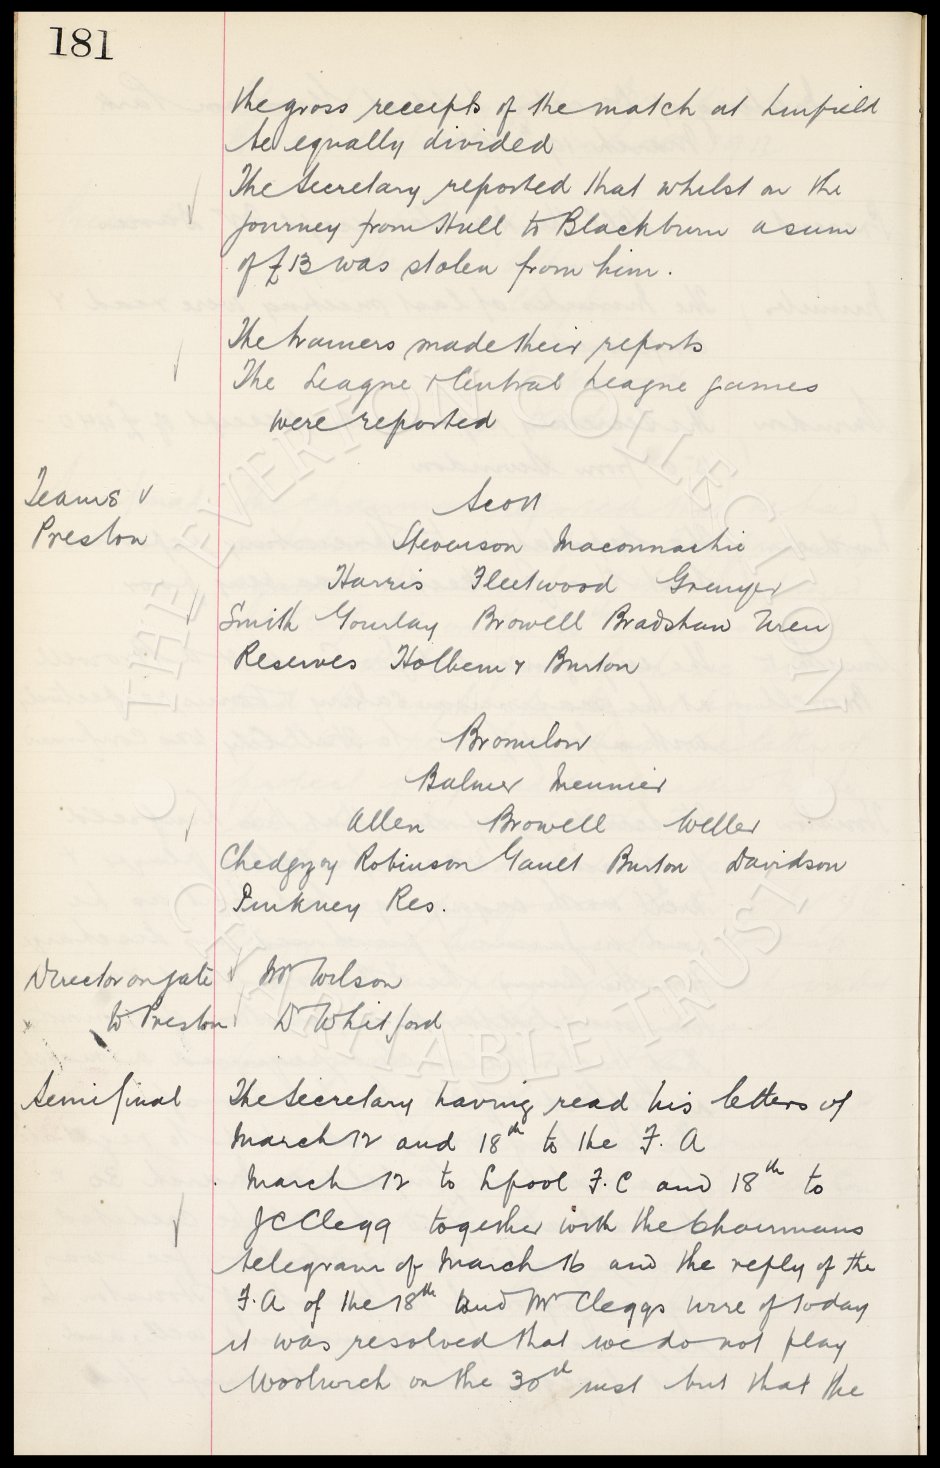 181
the gross receipts of the match at Linfield
be equally divided
The Secretary reported that whilst on the
journey from Hull to Blackburn a sum
of £13 was stolen from him.
The trainers made their reports
The League & Central League games
were reported
Teams v
Preston
Scott
Stevenson Maconnachie
Harris Fleetwood Grenyer
Smith Gourlay Browell Bradshaw Uren
Reserves Holbem & Burton
Bromilow
Balmer Meunier
Allen Browell Weller
Chedgzoy Robinson Gault Burton Davidson
Pinkney Res.
Director on gate Mr Wilson
to Preston Dr Whitford
Semi final
The Secretary having read his letters of
March 12 and 18th to the F. A
March 12 to Lpool F. C and 18th to
J C Clegg together with the Chairmans
telegram of March 16 and the reply of the
F. A of the 18th and Mr Cleggs wire of today
it was resolved that we do not play
Woolwich on the 30th inst but that the
THE EVERTON COLLECTION
CHARITABLE TRUST